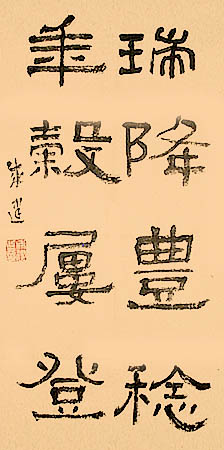 瑞降豊稔
年穀屢登